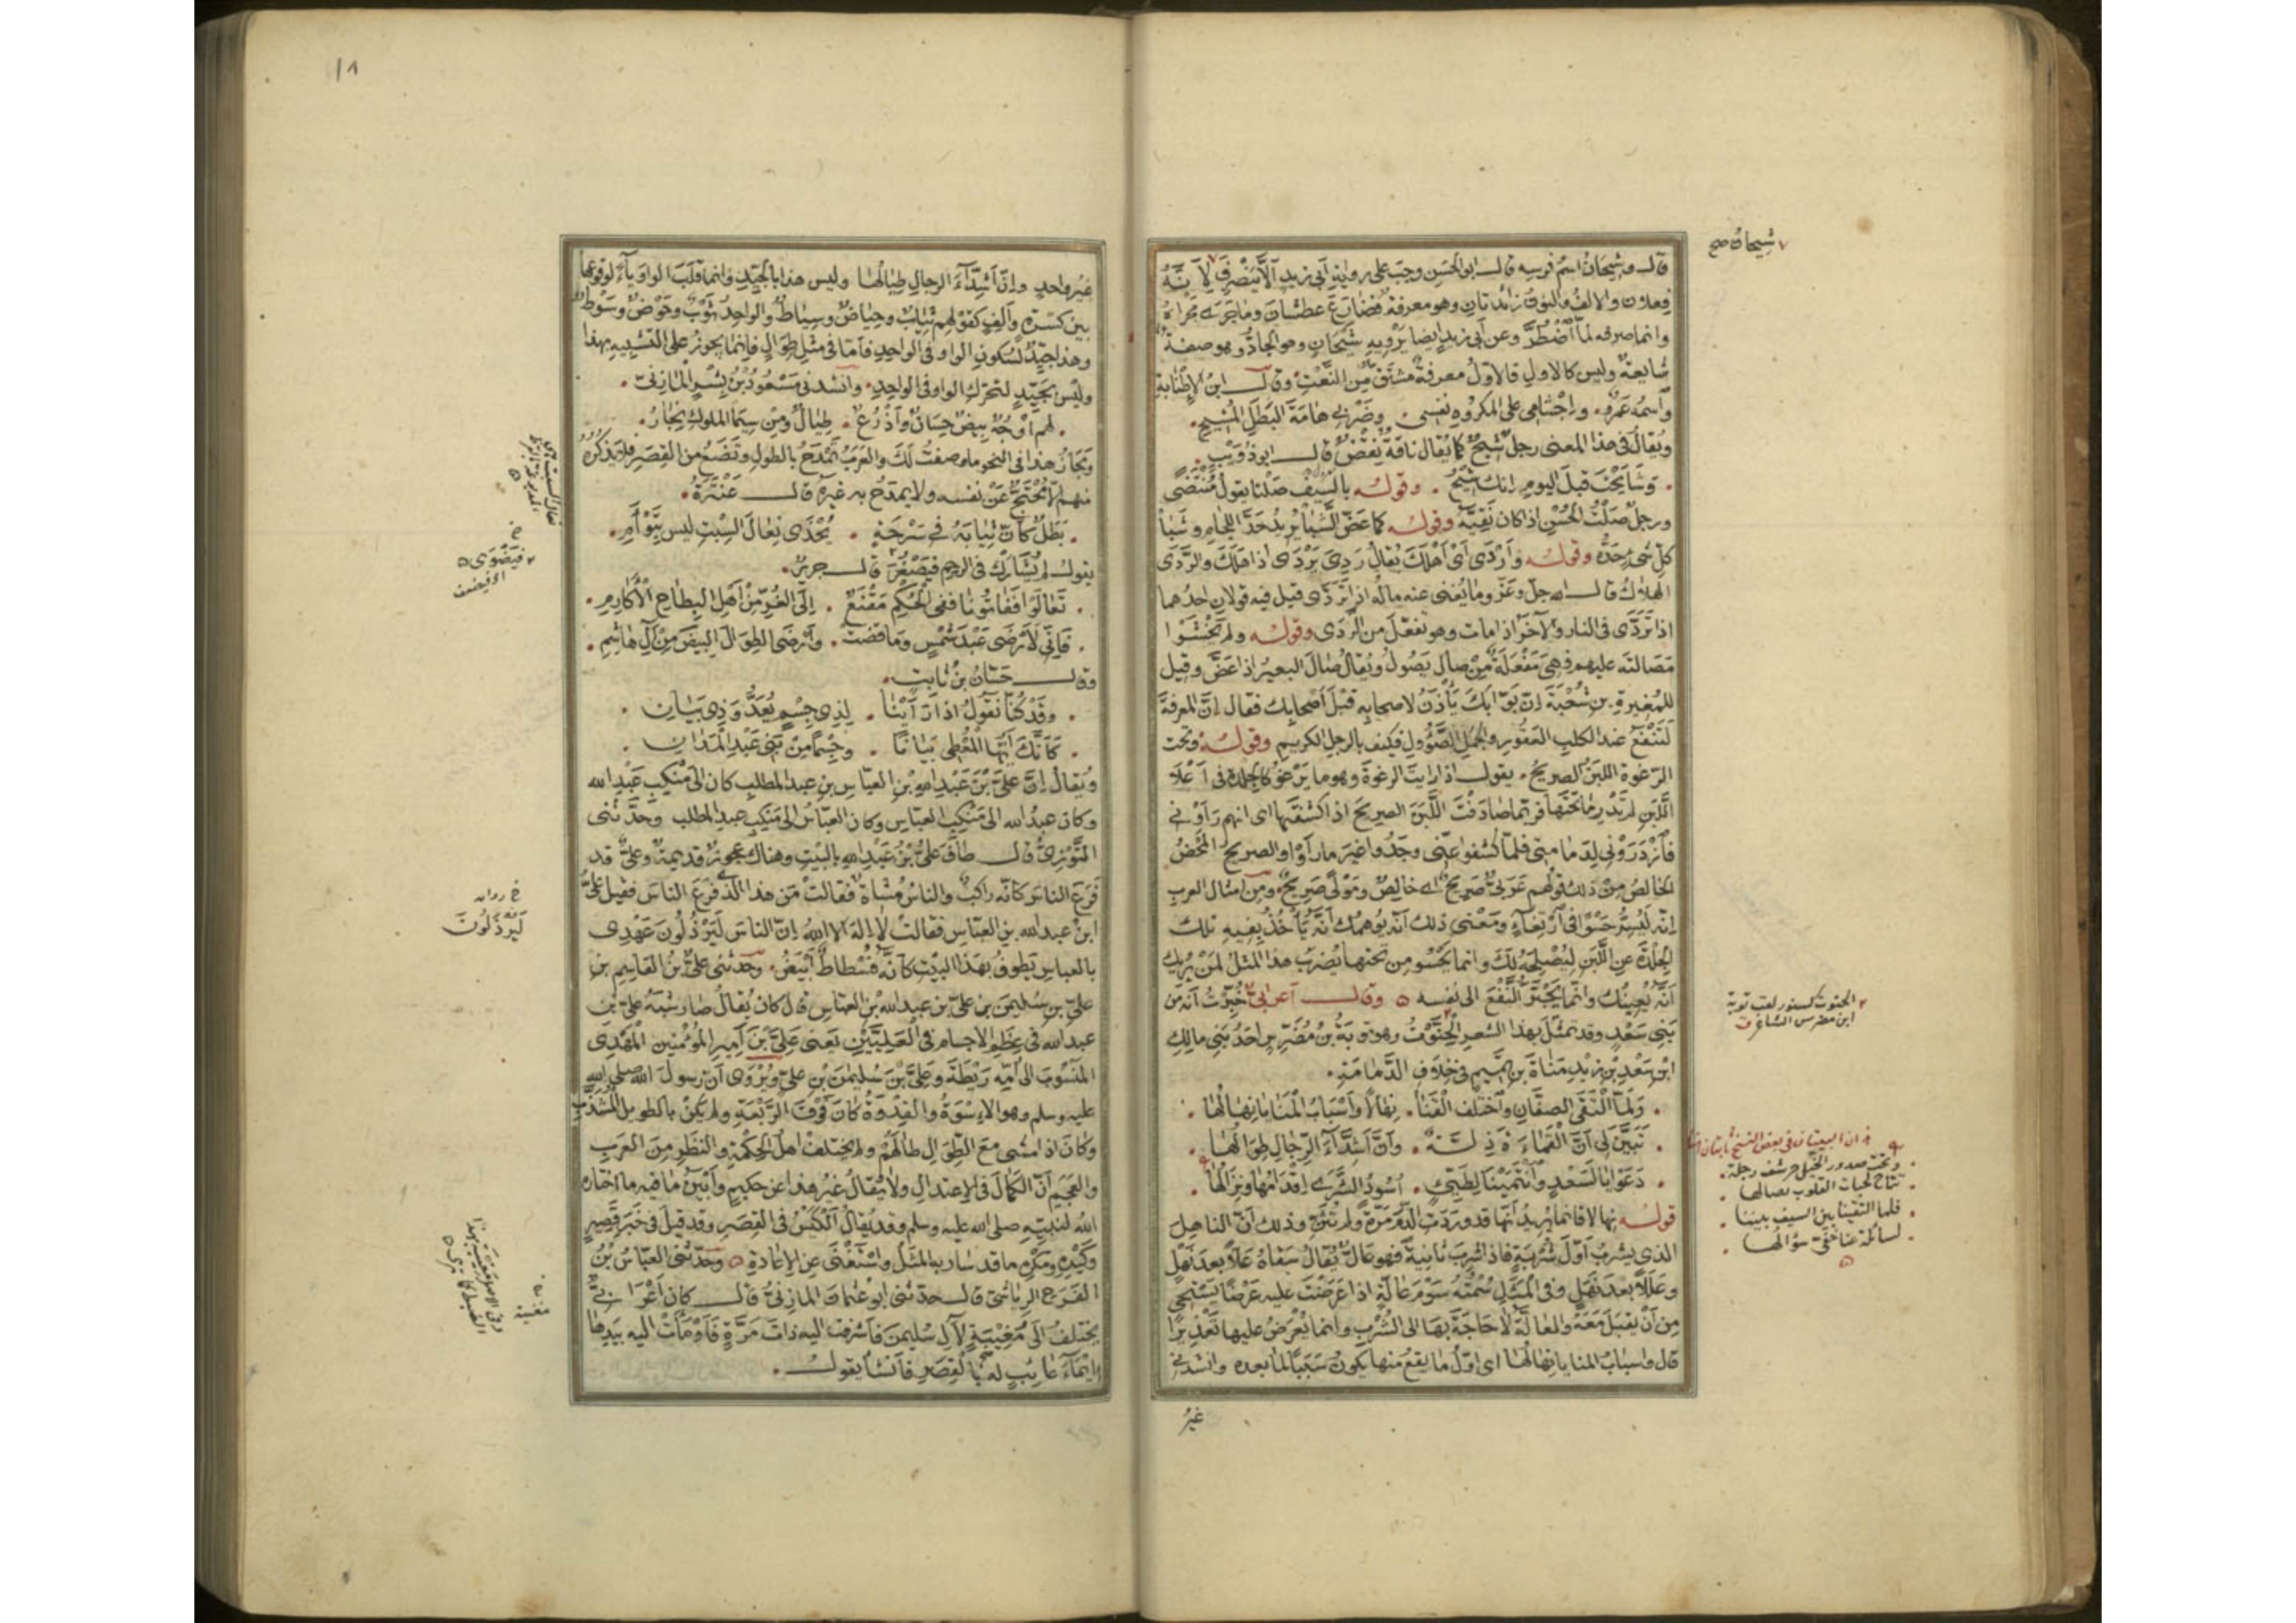 قال وشيحان اسم فرسه قال ابو الحسن وجب على رواية ابي زيد الا ينصرف لانه
فعلان والالف والنون زائدتان وهو معرفة فضارع عطشان وما جرى مجراه
وانما صرفه لما اضطر وعن ابي زيد ايضا يرويه شيحان وهو الجاد وهو صفة
شايعة وليس كالاول فالاول معرفة مشتق من النعت وقال ابن الاطنابة
واسمه عمرو . واجشامي على المكروه نفسي . وضربي هامة البطل المشيح .
ويقال في هذا المعنى رجل شيح كما يقال ناقة نقض قال ابو ذويب .
. وشايحت قبل اليوم انك شيح . وقوله بالسيف صلتا يقول منتضى
ورجل صلت الحسن اذا كان نقيه وقوله كما عض الشبا يريد حد اللجام وشبا
كل شي حده وقوله واردى اي اهلك يقال ردي يردى اذا هلك والردى
الهلاك قال الله جل وعز وما يغني عنه ماله اذا تردى قيل فيه قولان احدهما
اذا تردى في النار والاخر اذا مات وهو تفعل من الردى وقوله ولم تخشوا
مصالته عليهم فهي مفعلة من صال يصول ويقال صال البعير اذا عض وقيل
للمغيرة بن شعبة ان بوابك ياذن لاصحابه قبل اصحابك فقال ان المعرفة
لتنفع عند الكلب العقور والجمل الصؤول فكيف بالرجل الكريم وقوله وتحت
الرغوة اللبن الصريح . يقول اذا رايت الرغوة وهو ما يرغو كالجلدة في اعلا
اللبن لم تدر ما تحتها فربما صادفت اللبن الصريح اذا كشفتها اي انهم راوني
فازدروني لدمامتي فلما كشفوا عني وجدوا غير ما راوا والصريح المحض
الخالص من ذلك قولهم عربي صريح اي خالص ومولى صريح ومن امثال العرب
انه ليسر حسوا في ارتغاء ومعنى ذلك انه يوهمك انه ياخذ بفيه تلك
الجلدة عن اللبن ليصلحه لك وانما يحسو من تحتها يضرب هذا المثل لمن يريك
انه يعينك وانما يجتر النفع الى نفسه ٥ وقال اعرابي خبرت انه من
بني سعد وقد تمثل بهذا الشعر الخنوت وهو توبة بن مضرس احد بني مالك
ابن سعد بن زيد مناة بن تميم في خلاف الدمامة .
. ولما التقى الصفان واختلف القنا . نهالا واسباب المنايا نهالها .
. تبين لي ان القماءة ذلة . وان اشداء الرجال طوالها .
. دعوا يا لسعد وانتمينا لطيئ . اسود الشرى اقدامها ونزالها .
قوله نهالا فانما يريد انها قد وردت الدم مرة ولم تثن وذلك ان الناهل
الذي يشرب اول شربة فاذا شرب ثانية فهو عال يقال سقاه عللا بعد نهل
وعللا بعد نهل وفي المثل سمته سوم عالة اذا عرضت عليه عرضا يستحي
من ان يقبل معه والعالة لا حاجة بها الى الشرب وانما يعرض عليها تعذيرا
قال واسباب المنايا نهالها اي اول ما يقع منها يكون سببا لما بعده وانشدني
غير
شيحان صح
الخنوت كسنور لقب توبة
ابن مضرس الشاعر ق
البيتان في بعض النسخ ثابتان
وتحت صدور الخيل حرشف رجلة .
. تتاح لحبات القلوب نصالها .
. فلما التقينا بين السيف بيننا .
. لسائلة عنا حفي سؤالها .
١٨
غير واحد وان اشداء الرجال طيالها وليس هذا بالجيد وانما قلب الواو ياء لوقوعها
بين كسرة والف كقولهم ثياب وحياض وسياط والواحد ثوب وحوض وسوط
وهذا جيد لسكون الواو في الواحد فاما في مثل طوال فانما يجوز على التشبيه بهذا
وليس بجيد لتحرك الواو في الواحد . وانشدني مسعود بن بشر المازني .
. لهم اوجه بيض حسان واذرع . طيال ومن سيما الملوك نجار .
ومجاز هذا في النحو ما وصفت لك والعرب تمدح بالطول وتضع من القصر فلا يذكره
منهم الا محتج عن نفسه ولا يمدح به غيره قال عنترة .
. بطل كان ثيابه في سرحة . يحذى نعال السبت ليس بتوأم .
يقول لم يشارك في الرحم فيصغر قال جرير .
. تعالوا ففاتونا ففي الحكم مقنع . الى الغر من اهل البطاح الاكارم .
. فاني لارضى عبد شمس وما قضت . وارضى الطوال البيض من آل هاشم .
وقال حسان بن ثابت .
. وقد كنا نقول اذا راينا . لذي جسم يعد وذي بيان .
. كانك ايها المعطى بيانا . وجسما من بني عبد المدان .
ويقال ان علي بن عبد الله بن العباس بن عبد المطلب كان الى منكب عبد الله
وكان عبد الله الى منكب العباس وكان العباس الى منكب عبد المطلب وحدثني
التوزي قال طاف علي بن عبد الله بالبيت وهناك عجوز قديمة وعلي قد
فرع الناس كانه راكب والناس مشاة فقالت من هذا الذي فرع الناس فقيل علي
ابن عبد الله بن العباس فقالت لا اله الا الله ان الناس ليرذلون عهدي
بالعباس يطوف بهذا البيت كانه فسطاط ابيض . وحدثني علي بن القاسم بن
علي بن سليمن بن علي بن عبد الله بن العباس قال كان يقال صار شبه علي بن
عبد الله في عظم الاجسام في العليين يعني علي بن امير المؤمنين المهدي
المنسوب الى امه ريطة وعلي بن سليمن بن علي ويروى ان رسول الله صلى الله
عليه وسلم وهو الاسوة والقدوة كان فوق الربعة ولم يكن بالطويل المشذب
وكان اذا مشى مع الطوال طالهم ولم يختلف اهل الحكمة والنظر من العرب
والعجم ان الكمال في الاعتدال ولا يقال غير هذا عن حكيم وابين ما فيه ما اختاره
الله لنبيه صلى الله عليه وسلم وقد يقال الكيس في القصر وقد قيل في خبر قصير
وكيده ومكره ما قد سار به المثل واستغنى عن الاعادة ٥ وحدثني العباس بن
الفرج الرياشي قال حدثني ابو عثمان المازني قال كان اعرابي
يختلف الى مغنية لآل سليمن فاشرفت اليه ذات مرة فاومات اليه بيدها
ايماء عائب له بالقصر فانشا يقول .
خ
فيضوى ٥
اي فيضعف
ليرذلون
مغنية